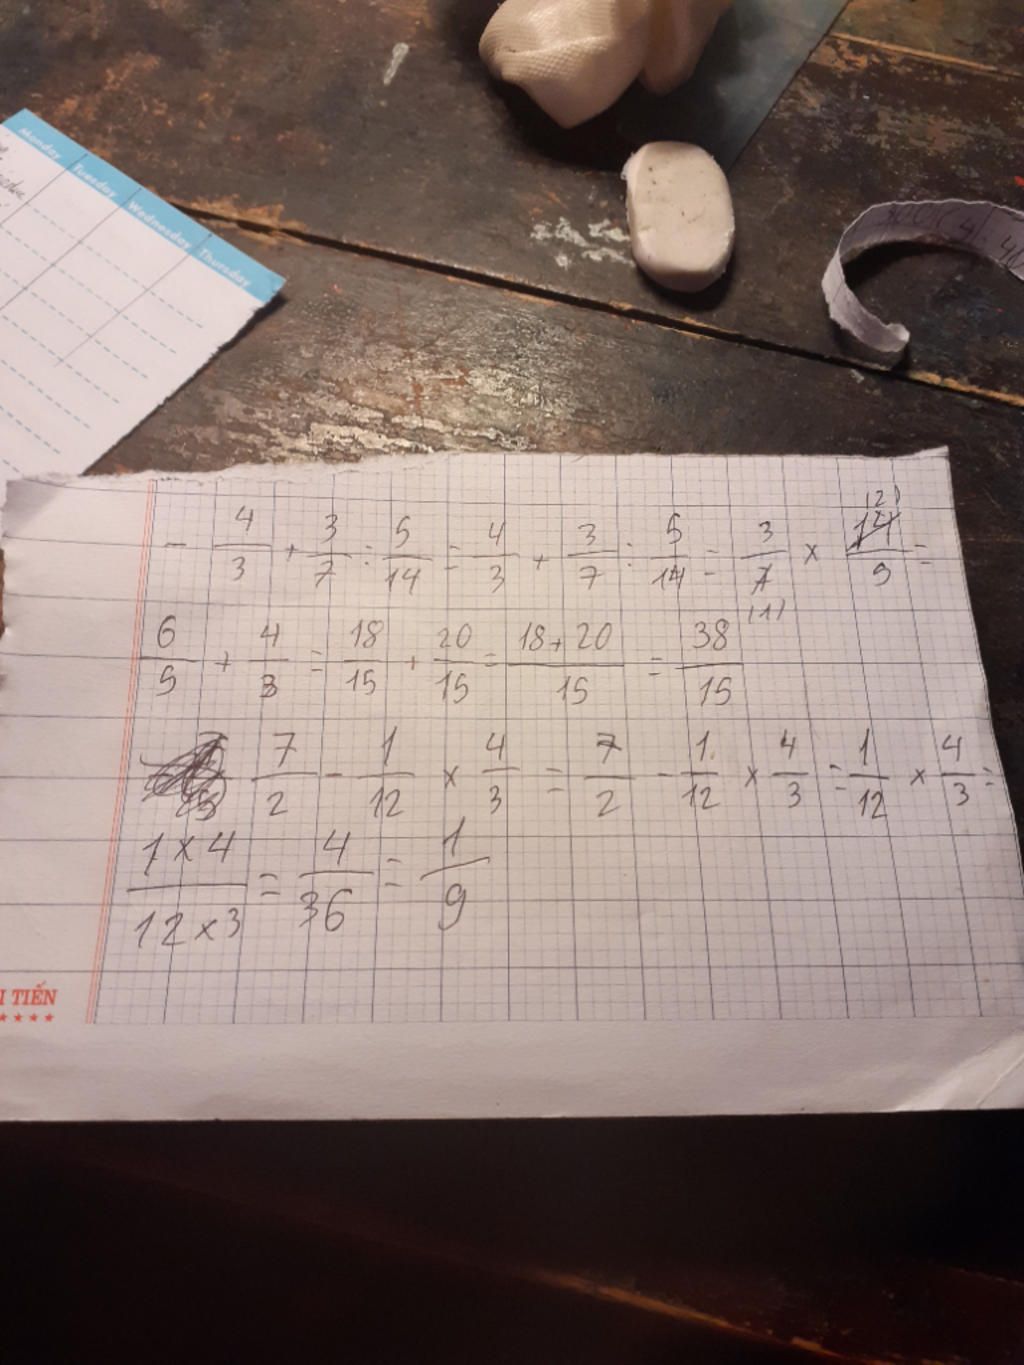 Monday Tuesday Wednesday Thursday
- 4/3 + 3/7 : 5/14 = 4/3 + 3/7 : 5/14 = 3/7 (1) × 14 (2)/5 =
6/5 + 4/3 = 18/15 + 20/15 = 18 + 20/15 = 38/15
7/2 - 1/12 × 4/3 = 7/2 - 1/12 × 4/3 = 1/12 × 4/3 =
1 × 4/12 × 3 = 4/36 = 1/9
I TIẾN